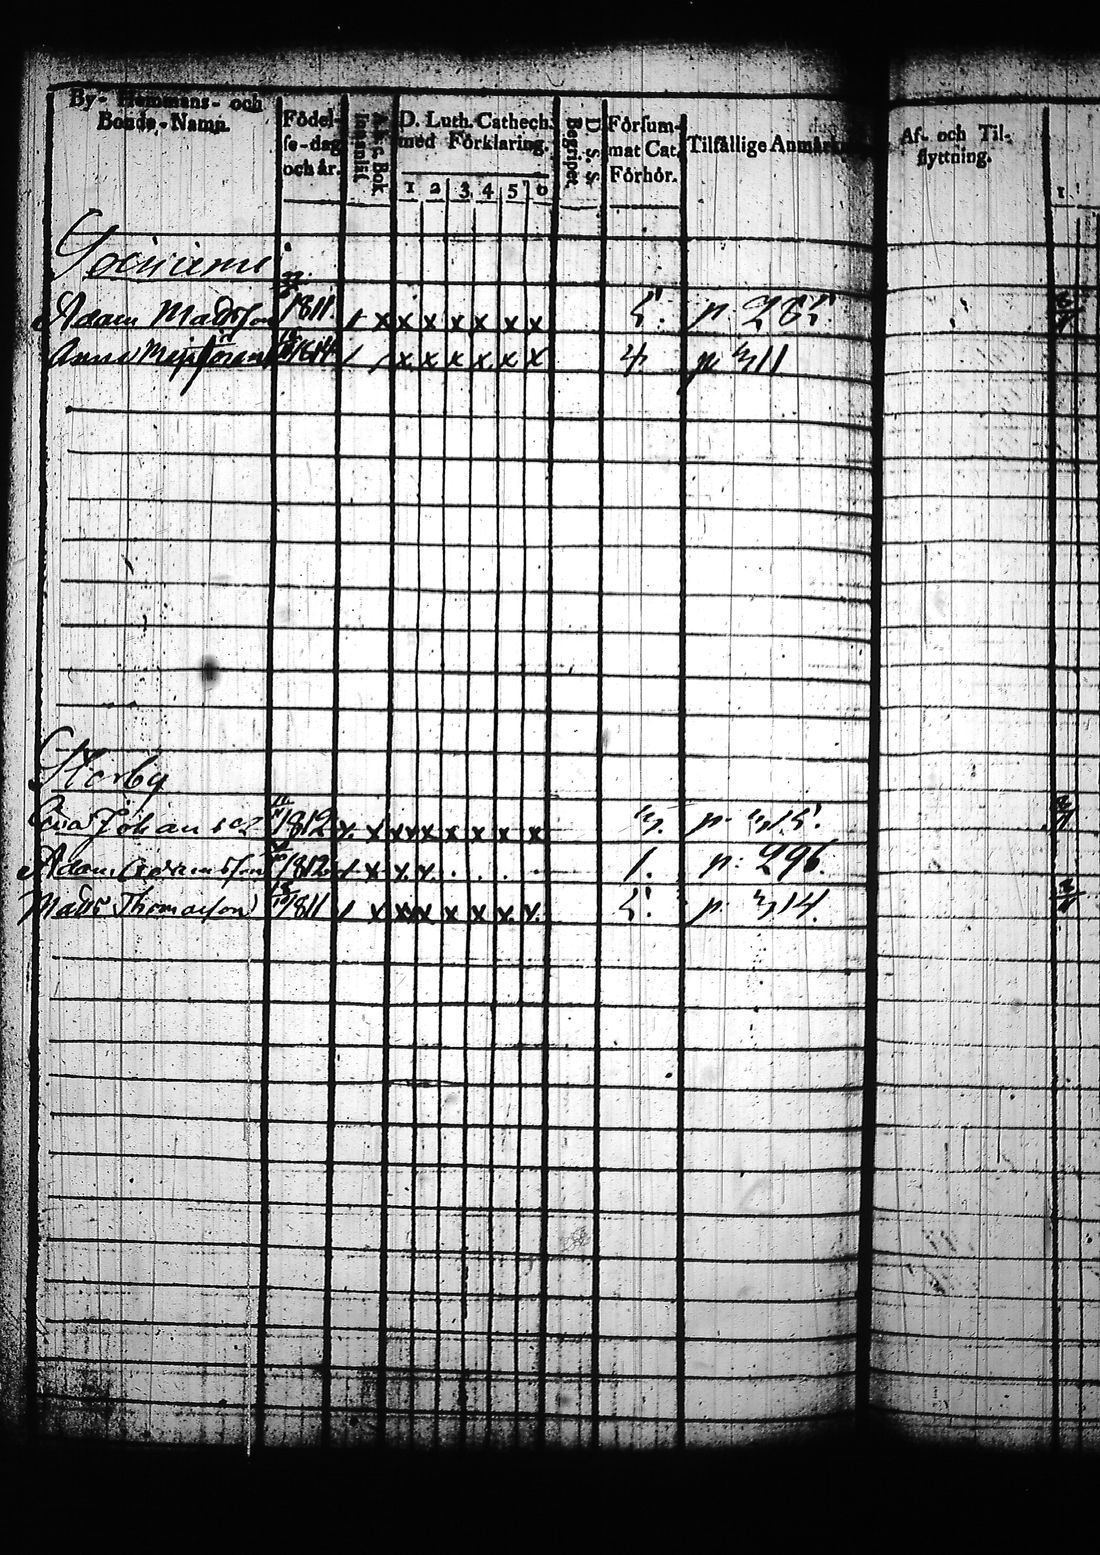 By- Hemmans- och
Bonda-Namn.
Födel-
se-dag
och år.
A. b. c. Bok
D. Luth. Cathech.
med Förklaring.
1 2 3 4 5 6
D. S. S.
Begripet
Försum-
mat Cat.
Förhör.
Tilfällige Anmärkn
Af- och Til-
flyttning.
1
Adam Madsson 1811 / x x x x x x x 5. p 265.
Anna / / x x x x x x 4 p 311
Storby
Johans 1812 x. x x x x x x x x 3. p 315.
Adam Adamsson 1812 / x x x . . . . 1. p 296.
Mads Thomasson 1811 / x x x x x x x x. 5. p 314.